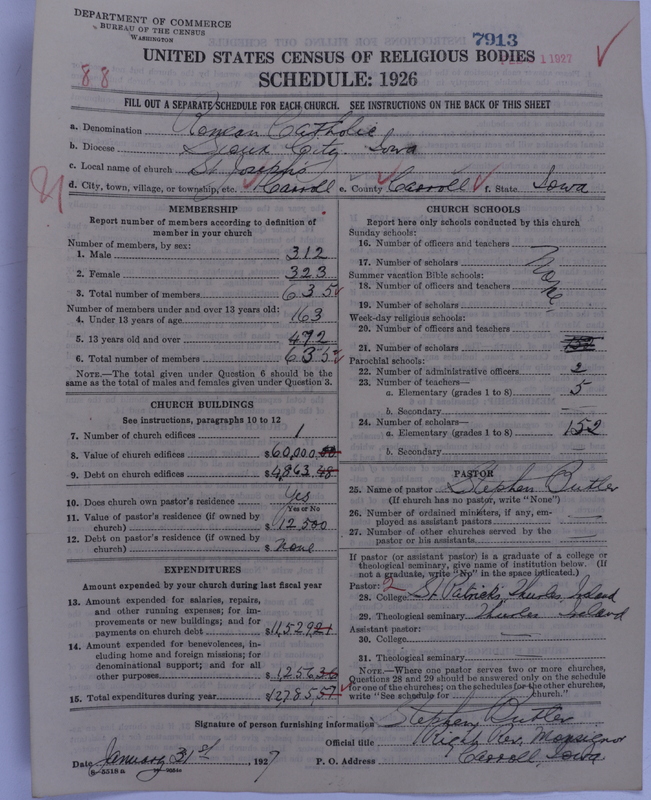 DEPARTMENT OF COMMERCE
BUREAU OF THE CENSUS
WASHINGTON
7913
1 1927
UNITED STATES CENSUS OF RELIGIOUS BODIES
88
SCHEDULE: 1926
FILL OUT A SEPARATE SCHEDULE FOR EACH CHURCH. SEE INSTRUCTIONS ON THE BACK OF THIS SHEET
a. Denomination Roman Catholic
b. Diocese Sioux City. Iowa
c. Local name of church St Joseph's
d. City, town, village, or township, etc. Carroll e. County Carroll f. State Iowa
MEMBERSHIP
Report number of members according to definition of
member in your church
Number of members, by sex:
1. Male 312
2. Female 323
3. Total number of members 635
Number of members under and over 13 years old:
4. Under 13 years of age 163
5. 13 years old and over 472
6. Total number of members 635
NOTE.—The total given under Question 6 should be
same as the total of males and females given under Question 3.
CHURCH BUILDINGS
See instructions, paragraphs 10 to 12
7. Number of church edifices 1
8. Value of church edifices $60,000.00
9. Debt on church edifices $4,843.48
10. Does church own pastor's residence Yes
Yes or No
11. Value of pastor's residence (if owned by
church) $12500
12. Debt on pastor's residence (if owned by
church) $None
EXPENDITURES
Amount expended by your church during last fiscal year
13. Amount expended for salaries, repairs,
and other running expenses; for im-
provements or new buildings; and for
payments on church debt $11,529.21
14. Amount expended for benevolences, in-
cluding home and foreign missions; for
denominational support; and for all
other purposes $1,256.36
15. Total expenditures during year $12785.57
CHURCH SCHOOLS
Report here only schools conducted by this church
Sunday schools:
16. Number of officers and teachers
17. Number of scholars
None
Summer vacation Bible schools:
18. Number of officers and teachers
19. Number of scholars
Week-day religious schools:
20. Number of officers and teachers
21. Number of scholars 152
Parochial schools:
22. Number of administrative officers 2
23. Number of teachers—
a. Elementary (grades 1 to 8) 5
b. Secondary —
24. Number of scholars—
a. Elementary (grades 1 to 8) 152
b. Secondary —
PASTOR
25. Name of pastor Stephen Butler
(If church has no pastor, write "None")
26. Number of ordained ministers, if any, em-
ployed as assistant pastors —
27. Number of other churches served by the
pastor or his assistants —
If pastor (or assistant pastor) is a graduate of a college or
theological seminary, give name of institution below. (If
not a graduate, write "No" in the space indicated.)
Pastor: 2
28. College St Patrick's, Thurles, Ireland
29. Theological seminary Thurles Ireland
Assistant pastor:
30. College —
31. Theological seminary —
NOTE.—Where one pastor serves two or more churches,
Questions 28 and 29 should be answered only on the schedule
for one of the churches; on the schedules for the other churches,
write "See schedule for church."
Signature of person furnishing information Stephen Butler
Official title Right Rev. Monsignor
Date January 31st, 1927 P. O. Address Carroll, Iowa
8—5518a